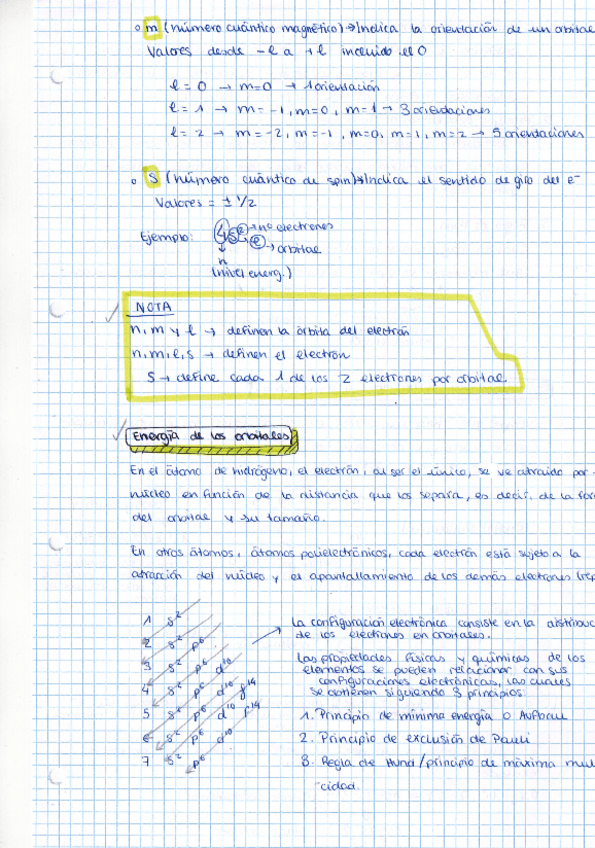 o m (número cuántico magnético) → Indica la orientación de un orbital
Valores desde -l a +l incluido el 0
l = 0 → m=0 → 1 orientación
l = 1 → m= -1, m=0, m=1 → 3 orientaciones
l = 2 → m= -2, m= -1, m=0, m=1, m=2 → 5 orientaciones
o S (número cuántico de spin) → Indica el sentido de giro del e⁻
Valores = ± 1/2
Ejemplo: 4s² → nº electrones
l → orbital
n
(nivel energ.)
NOTA
n, m y l → definen la órbita del electrón
n, m, l, s → definen el electrón
s → define cada 1 de los 2 electrones por orbital
Energía de los orbitales
En el átomo de hidrógeno, el electrón, al ser el único, se ve atraído por
núcleo en función de la distancia que los separa, es decir, de la for
del orbital y su tamaño.
En otros átomos, átomos polielectrónicos, cada electrón está sujeto a la
atracción del núcleo y el apantallamiento de los demás electrones (rep
1 s²
2 s² p⁶
3 s² p⁶ d¹⁰
4 s² p⁶ d¹⁰ f¹⁴
5 s² p⁶ d¹⁰ f¹⁴
6 s² p⁶ d¹⁰
7 s² p⁶
La configuración electrónica consiste en la distribuc
de los electrones en orbitales.
Las propiedades físicas y químicas de los
elementos se pueden relacionar con sus
configuraciones electrónicas, las cuales
se obtienen siguiendo 3 principios
1. Principio de mínima energía o Aufbau
2. Principio de exclusión de Pauli
3. Regla de Hund / principio de máxima mul
cidad.